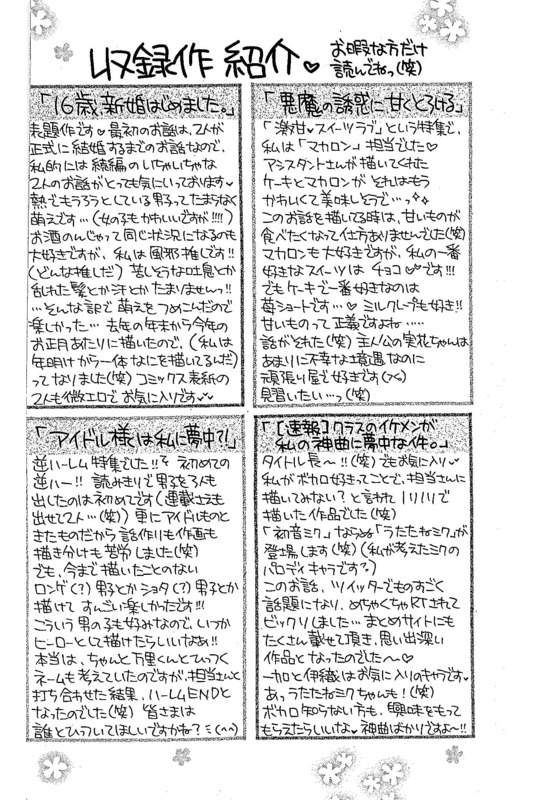 収録作 紹介♡
お暇な方だけ
読んでねっ(笑)
「16歳、新婚はじめました。」
表題作です♡最初のお話は、2人が
正式に結婚するまでのお話なので、
私的には続編のいちゃいちゃな
2人のお話がとっても気にいっております♡
熱でもうろうとしている男子ってたまらなく
萌えです…(女の子もかわいいですが!!!!)
お酒のんじゃって同じ状況になるのも
大好きですが、私は風邪推しです!!
(どんな推しだ) 苦しそうな吐息とか
乱れた髪とか汗とかたまりませんっ!!
…そんな訳で萌えをつめこんだので
楽しかった… 去年の年末から今年の
お正月あたりに描いたので、(私は
年明けから一体なにを描いてるんだ)
ってなりました(笑)コミックス表紙の
2人も微エロでお気に入りです♡
「悪魔の誘惑に甘くとろける」
「激甘♡スイーツラブ」という特集で、
私は「マカロン」担当でした♡
アシスタントさんが描いてくれた
ケーキとマカロンがそれはもう
かわいくて美味しそうで…っ✧✧
このお話を描いてる時は、甘いものが
食べたくなって仕方ありませんでした(笑)
マカロンも大好きですが、私の一番
好きなスイーツは チョコ♡です!!!
でもケーキで一番好きなのは
苺ショートです…♡ ミルクレープも好き!!
甘いものって正義ですよね……
話がそれた(笑)主人公の実花ちゃんは
あまりに不幸な境遇なのに
頑張り屋で好きです(>く)
見習いたい…っ(笑)
「アイドル様は私に夢中?!」
逆ハーレム特集でした!!そ 初めての
逆ハー!! 読みきりで男子を3人も
出したのは初めてです(連載さえも
出せて2人…(笑)) 更にアイドルものと
きたものだから話作りも作画も
描き分けも苦労しました(笑)
でも、今まで描いたことのない
ロンゲ(?)男子とかショタ(?)男子とか
描けてすんごい楽しかったです!!!
こういう男の子も好みなので、いつか
ヒーローとして描けたらいいなぁ!!
本当は、ちゃんと万里くんとくっつく
ネームも考えていたのですが、担当さんと
打ち合わせた結果、ハーレムENDと
なったのでした(笑) 皆さまは
誰とひっついてほしいですかね?ミ(^^)
「【速報】クラスのイケメンが
私の神曲に夢中な件。」
タイトル長〜!!(笑)でもお気に入り♡
私がボカロ好きってことで、担当さんに
描いてみない?と言われノリノリで
描いた作品でした(笑)
「初音ミク」ならぬ「うたたねミク」が
登場します(笑)(私が考えたミクの
パロディキャラです?)
このお話、ツイッターでものすごく
話題になり、めちゃくちゃRTされて
ビックリしました… まとめサイトにも
たくさん載せて頂き、思い出深い
作品となったのでした〜♡
一加と伊織はお気に入りのキャラです♡
あ、うたたねミクちゃんも!(笑)
ボカロ知らない方も、興味をもって
もらえたらいいな♪神曲ばかりですよ〜!!